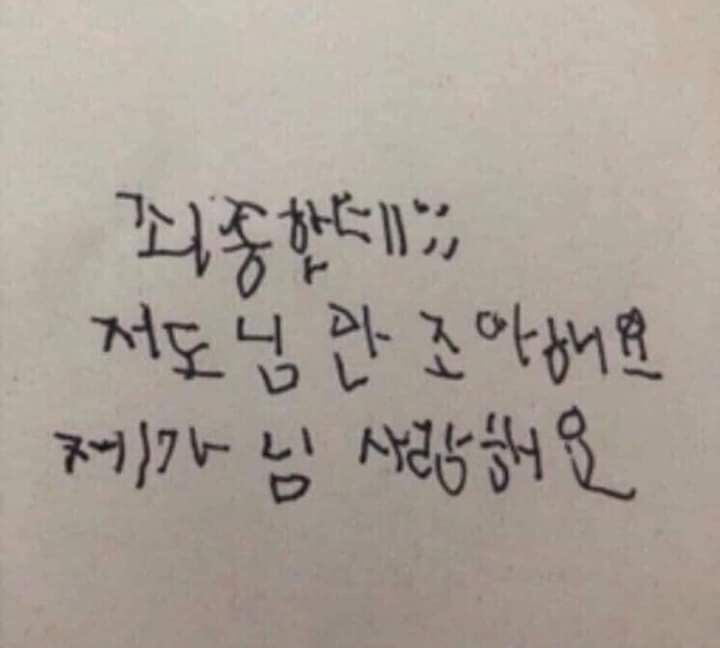 죄송한데;;
저도 님 만 조아해요
제가 님 사랑해요